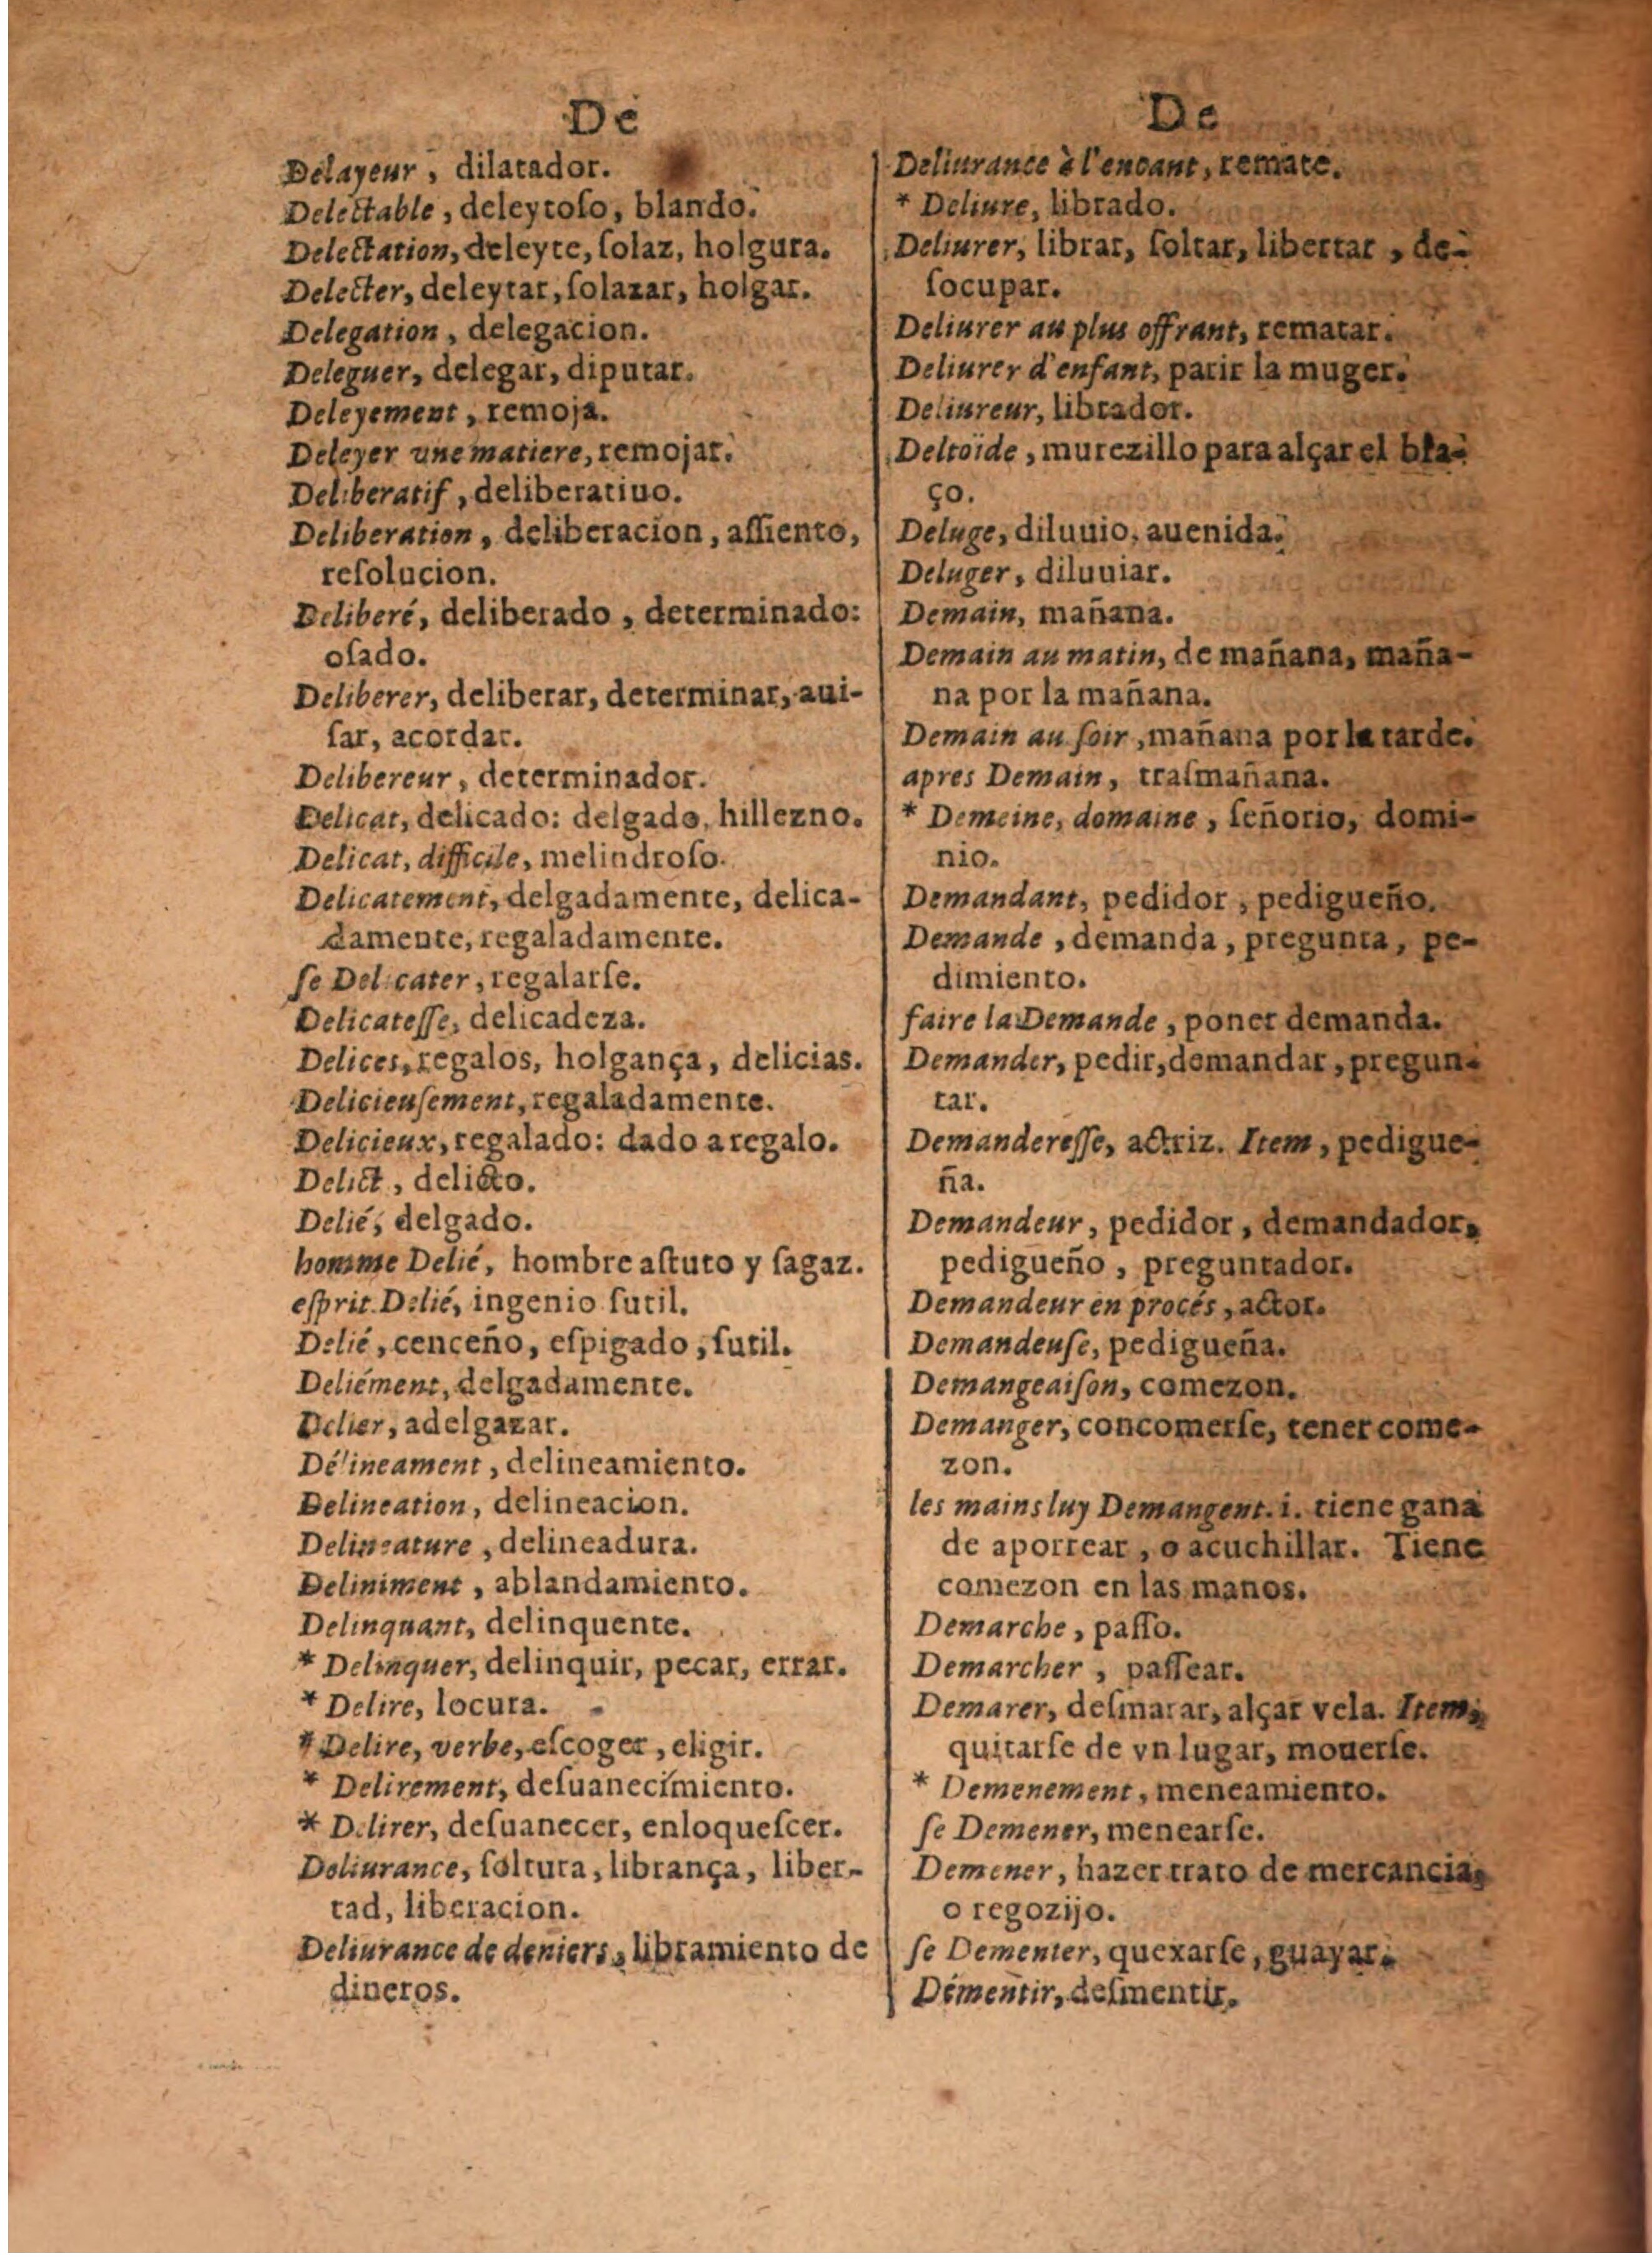 De
Delayeur, dilatador.
Delectable, deleytoſo, blando.
Delectation, deleyte, ſolaz, holgura.
Delecter, deleytar, ſolazar, holgar.
Delegation, delegacion.
Deleguer, delegar, diputar.
Deleyement, remoja.
Deleyer une matiere, remojar.
Deliberatif, deliberatiuo.
Deliberation, deliberacion, aſſiento,
reſolucion.
Deliberé, deliberado, determinado:
oſado.
Deliberer, deliberar, determinar, aui-
ſar, acordar.
Delibereur, determinador.
Delicat, delicado: delgado, hillezno.
Delicat, difficile, melindroſo.
Delicatement, delgadamente, delica-
damente, regaladamente.
ſe Delicater, regalarſe.
Delicateſſe, delicadeza.
Delices, regalos, holgança, delicias.
Delicieuſement, regaladamente.
Delicieux, regalado: dado a regalo.
Delict, delicto.
Delié, delgado.
homme Delié, hombre aſtuto y ſagaz.
eſprit Delié, ingenio ſutil.
Delié, cenceño, eſpigado, ſutil.
Deliément, delgadamente.
Delier, adelgazar.
Délineament, delineamiento.
Delineation, delineacion.
Delineature, delineadura.
Deliniment, ablandamiento.
Delinquant, delinquente.
* Delinquer, delinquir, pecar, errar.
* Delire, locura.
* Delire, verbe, eſcoger, eligir.
* Delirement, deſuanecimiento.
* Delirer, deſuanecer, enloqueſcer.
Deliurance, ſoltura, librança, liber-
tad, liberacion.
Deliurance de deniers, libramiento de
dineros.
De
Deliurance à l'encant, remate.
* Deliure, librado.
Deliurer, librar, ſoltar, libertar, de-
ſocupar.
Deliurer au plus offrant, rematar.
Deliurer d'enfant, parir la muger.
Deliureur, librador.
Deltoïde, murezillo para alçar el bra-
ço.
Deluge, diluuio, auenida.
Deluger, diluuiar.
Demain, mañana.
Demain au matin, de mañana, maña-
na por la mañana.
Demain au ſoir, mañana por la tarde.
apres Demain, traſmañana.
* Demeine, domaine, ſeñorio, domi-
nio.
Demandant, pedidor, pedigueño.
Demande, demanda, pregunta, pe-
dimiento.
faire la Demande, poner demanda.
Demander, pedir, demandar, pregun-
tar.
Demandereſſe, actriz. Item, pedigue-
ña.
Demandeur, pedidor, demandador,
pedigueño, preguntador.
Demandeur en procés, actor.
Demandeuſe, pedigueña.
Demangeaiſon, comezon.
Demanger, concomerſe, tener come-
zon.
les mains luy Demangent. i. tiene gana
de aporrear, o acuchillar. Tiene
comezon en las manos.
Demarche, paſſo.
Demarcher, paſſear.
Demarer, deſmarar, alçar vela. Item,
quitarſe de vn lugar, mouerſe.
* Demenement, meneamiento.
ſe Demener, menearſe.
Demener, hazer trato de mercancia,
o regozijo.
ſe Dementer, quexarſe, guayar.
Démentir, deſmentir.